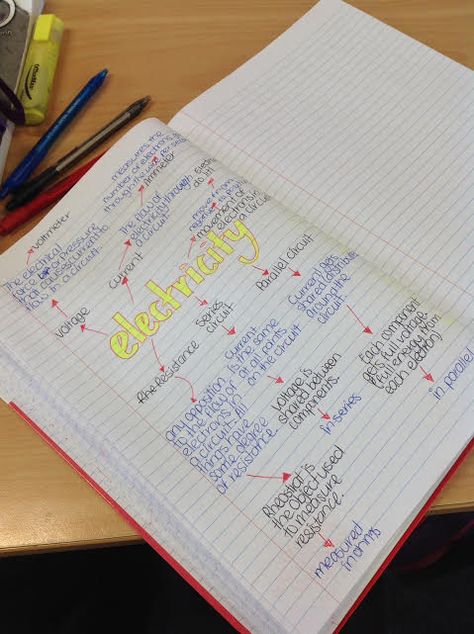 electricity
voltmeter
The electrical
force or pressure
that causes current to
flow in a circuit.
voltage
measures the
number of electrons
through the wire per
Ammeter
The flow of
electricity through
a circuit
current
do it!
move from
negative to
movement of
electrons in
a circuit
Parallel circuit
Current gets
shared
around the
circuit
Each component
gets full voltage
(full energy from
each electron)
in parallel
Series
circuit
Current
is the same
at all points
on the circuit
voltage is
shared between
components.
in series
Resistance
any opposition
to the flow of
electrons in
a circuit. All
things have
some degree
of resistance.
Rheostat is
the object used
to measure
resistance.
measured
in